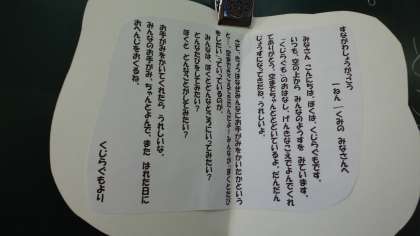 すながわしょうがっこう
一ねん 一くみの みなさんへ
みなさん、こんにちは。ぼくは、くじらぐもです。
いつも、空の上から みんなのようすを みています。
「くじらぐも」のおはなし、げんきなこえでよんでくれ
てありがとう。空までちゃんととどいているよ。だんだん
じょうずになってきたね。うれしいよ。
みんなは、ぼくとどんなところにいってみたい？
どんなたびをしてみたい？
ぼくと どんなことがしてみたい？
お手がみをかいてくれたら うれしいな。
みんなのお手がみ、ちゃんとよんで、また はれた日に
おへんじをおくるね。
くじらぐもより